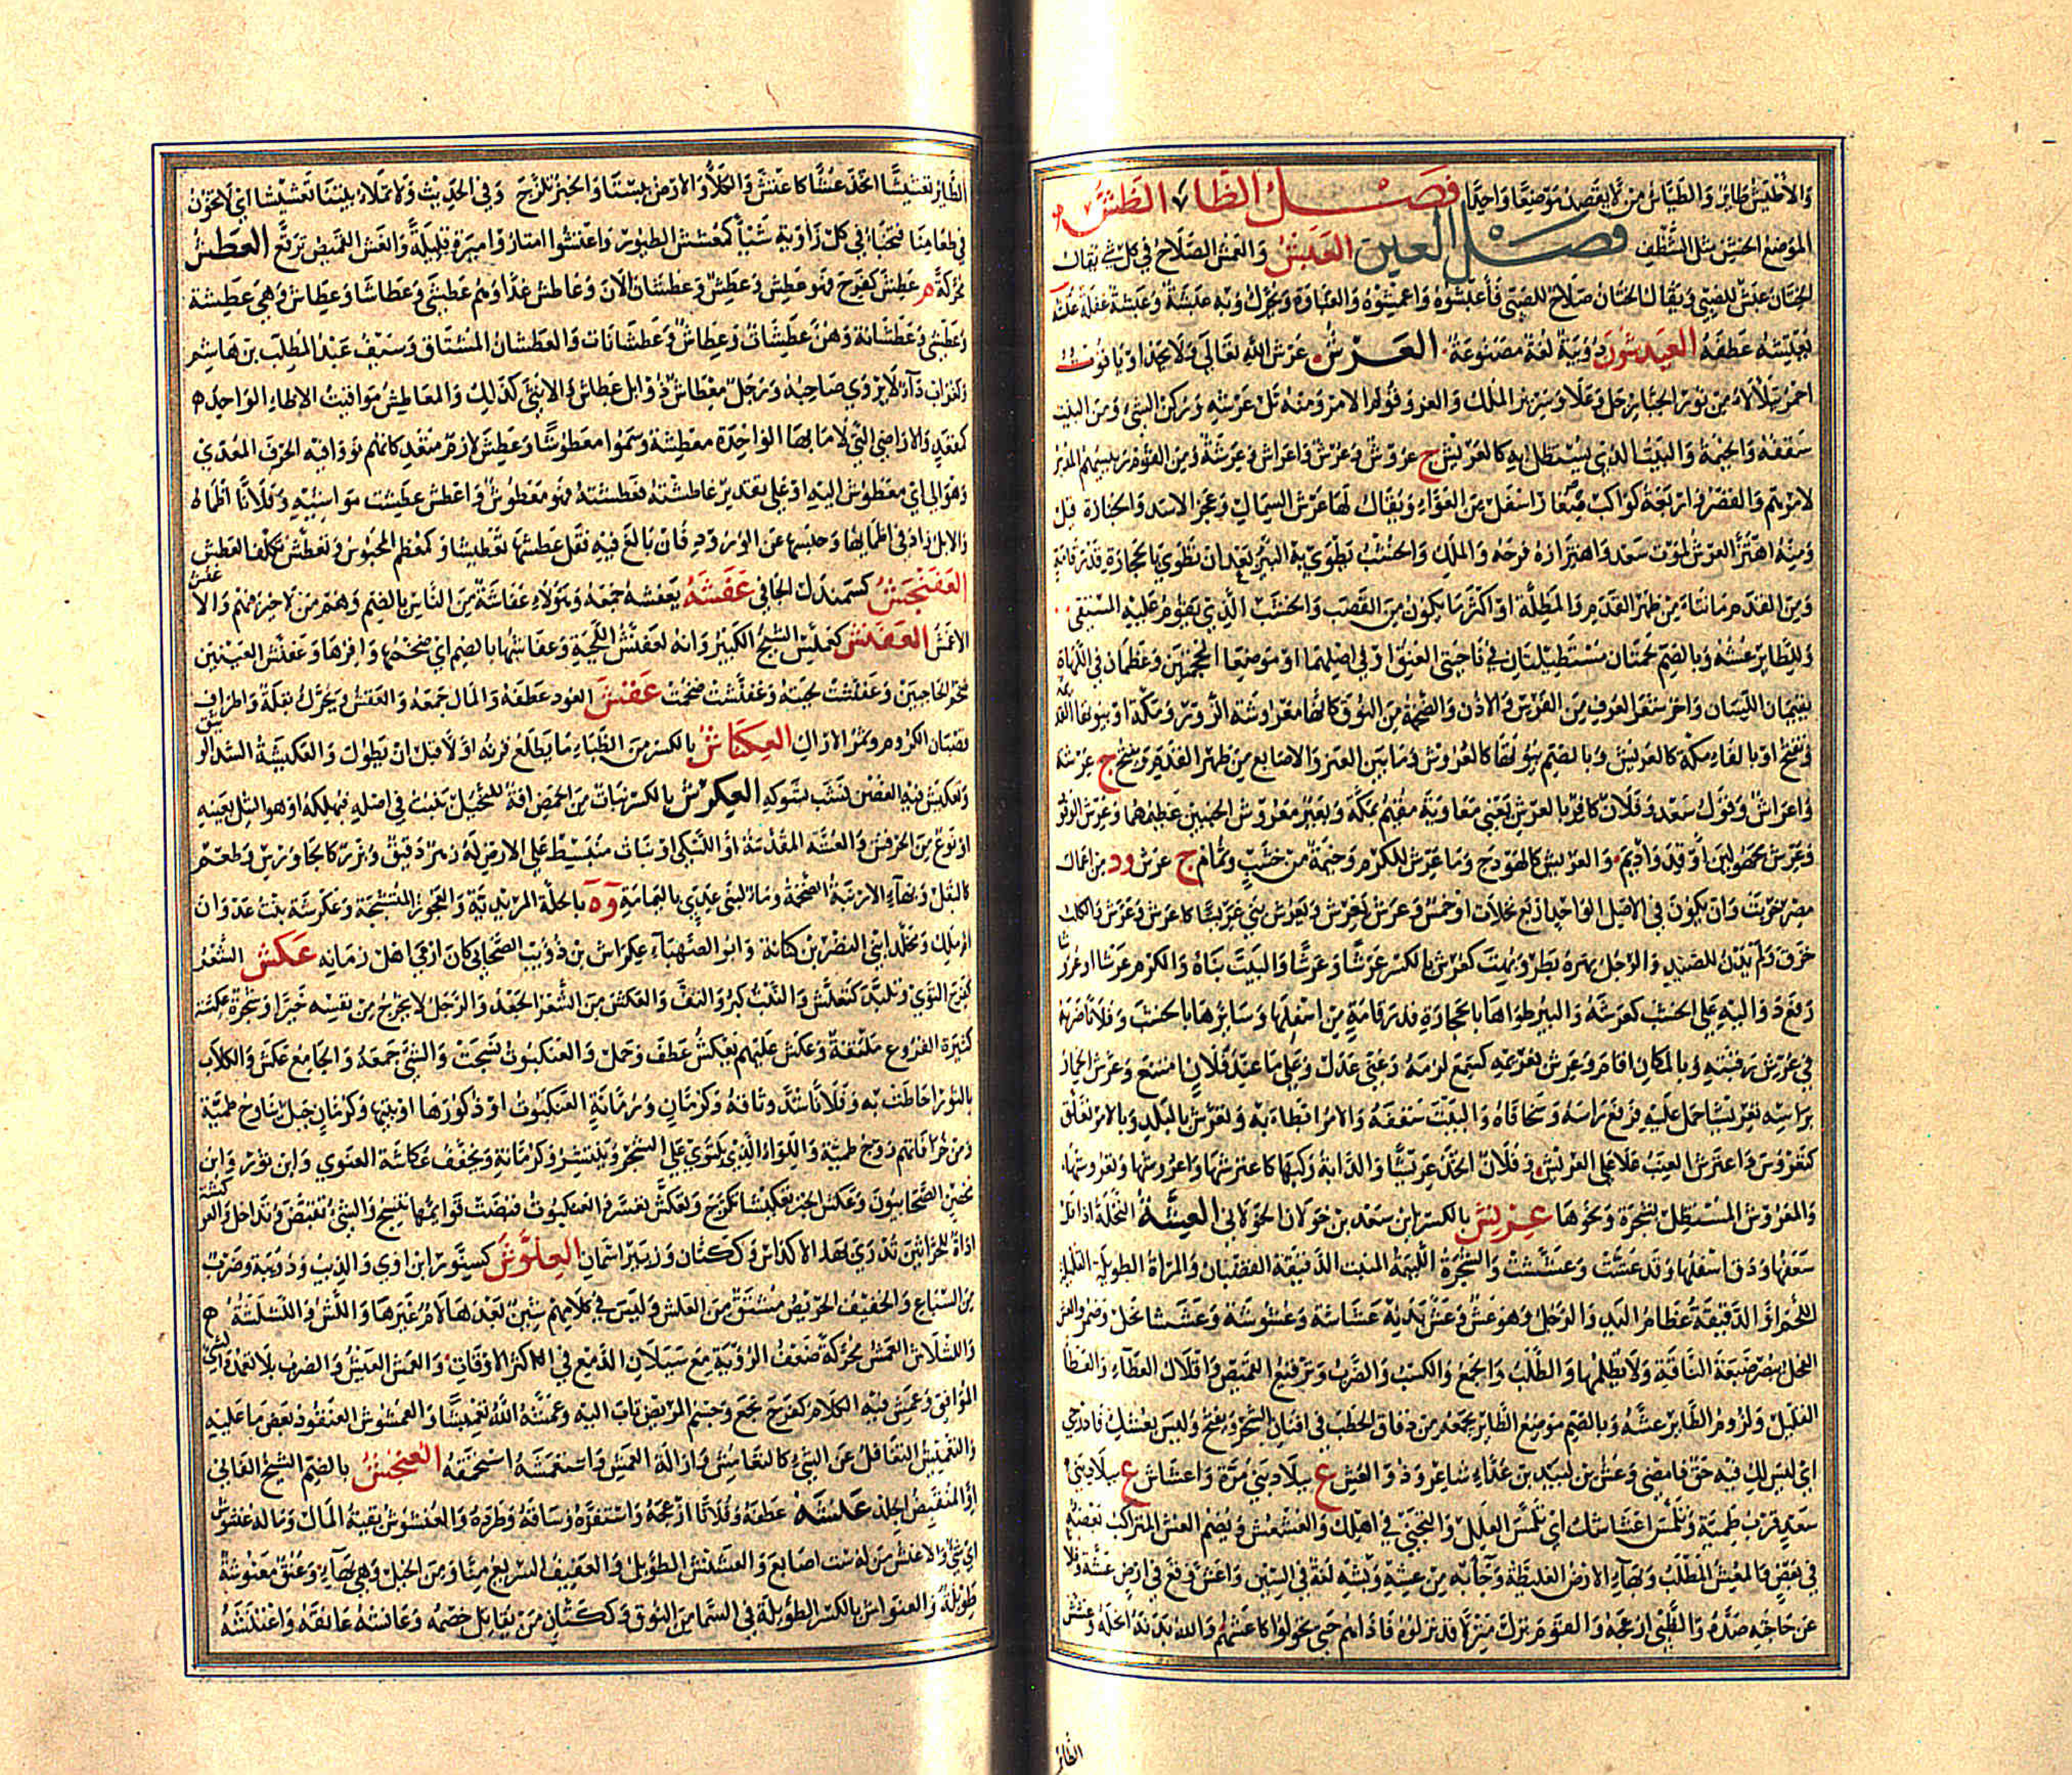 والأطيش طائر والطياش من لا يقصد موضعا واحدا فصل الظاء الظش
الموضع الخشن مثل الشظف فصل العين العبش والغبش الصلاح في كل شيء يقال
الختان عبش للصبي ويقال الختان صلاح للصبي فأعبشوه واعمشوه والغباوة ويحرك وبه عبشة وعبشة غفلة عتشه
يعتشه عطفه العيدشون دويبة لغة مصنوعة العرش عرش الله تعالى ولا يحد او ياقوت
احمر يتلألأ من نور الجبار جل وعلا وسرير الملك والعز وقوام الامر ومنه ثل عرشه وركن الشيء ومن البيت
سقفه والخيمة والبيت الذي يستظل به كالعريش ج عروش وعرش واعراش وعرشة ومن القوم رئيسهم المدبر
لامرهم والقصر واربعة كواكب صغار اسفل من العواء ويقال لها عرش السماك وعجز الاسد والجنازة قيل
ومنه اهتز العرش لموت سعد واهتزازه فرحه والملك والخشب تطوى به البئر بعد ان تطوى بالحجارة قدر قامة
ومن القدم ما نتأ من ظهر القدم والمظلة اكثر ما يكون من القصب والخشب الذي يقوم عليه المستقي
وللطائر عشه وبالضم لحمتان مستطيلتان في ناحيتي العنق او في اصلهما او موضعا المحجمتين وعظمان في اللهاة
يقيمان اللسان واخر شعر العرف من الفرس والاذن والضخمة من النوق كانها معروشة الزور ومكة او بيوتها القديمة
ويفتح او بالفتح مكة كالعريش وبالضم بيوتها كالعروش وما بين العير والاصابع من ظهر القدم ويفتح ج عرشة
واعراش وقول سعد وفلان كافر بالعرش يعني معاوية مقيم بمكة وبعير معروش الجنبين عظيمهما وعرش الوقود
وعرش مجهولين اوقد واديم والعريش كالهودج وما عرش للكرم وخيمة من خشب وثمام ج عرش و د من اعمال
مصر خربت وان يكون في الاصل الواحد اربع نخلات او خمس وعرش يعرش ويعرش بنى عريشا كاعرش وعرش والكلب
خرق ولم يدن للصيد والرجل بهره بطر وبهت كعرش بالكسر عرشا وعرشا والبيت بناه والكرم عرشا وعروشا
رفع دواليه على الخشب كعرشه والبئر طواها بالحجارة قدر قامة من اسفلها وسائرها بالخشب وفلانا ضربه
في عرش رقبته وبالمكان اقام وعرش بغريمه كسمع لزمه وعني عدل وعلي ما عند فلان امتنع وعرش الحمار
براسه تعريشا حمل عليه فرفع راسه وشحا فاه والبيت سقفه والامر ابطا به وتعرش بالبلد وبالامر تعلق
كتعروش واعترش العنب علا على العريش وفلان اتخذ عريشا والدابة ركبها كاعترشها واعروشها وتعروشها
والمعروش المستظل بشجرة ونحوها عزيش بالكسر ابن سعد بن خولان الخولاني العشة النخلة اذا قل
سعفها ودق اسفلها وقد عشت وعششت والشجرة اللئيمة المنبت الدقيقة القضبان والمراة الطويلة القليلة
اللحم او الدقيقة عظام اليد والرجل وهو عش وعش بدنه عشاشة وعشوشة وعششا نحل وضمر والعش
الفحل يبصر ضبعة الناقة ولا يظلمها والطلب والجمع والكسب والضرب وترقيع القميص واقلال العطاء والعطاء
القليل ولزوم الطائر عشه وبالضم موضع الطائر يجمعه من دقاق الحطب في افنان الشجر ويفتح وليس بعشك فادرجي
اي ليس لك فيه حق فامضي وعش بن لبيد بن عداء شاعر وذو العش ع ببلاد بني مرة واعشاش ع ببلاد بني
سعد قرب طمية وتلمس اعشاشك اي تلمس العلل والتجني في اهلك والعشعش ويضم العش المتراكب بعضه
في بعض والمعش المطلب وبهاء الارض الغليظة وجاء به من عشه وبشه لغة في السين واعش وقع في ارض عشة وفلانا
عن حاجته صده والظبي ازعجه والقوم نزل منزلا قد نزلوه فاذاهم حتى تحولوا كاعشهم والله بدنه انحله وعشش
الطائر
الطائر تعشيشا اتخذ عشا كاعتش والكلأ والارض يبسا والخبز تكرج وفي الحديث ولا تملأ بيتنا تعشيشا اي لا تخون
في طعامنا فتخبأ في كل زاوية شيأ كمعشش الطيور واعتشوا امتاروا ميرة قليلة والعش القميص ترقع العطش
محركة م عطش كفرح فهو عطش وعطش وعطشان الآن وعاطش غدا وهم عطشى وعطاشى وعطاش وهي عطشة
وعطشى وعطشانة وهن عطشات وعطاش وعطشانات والعطشان المشتاق وسيف عبد المطلب بن هاشم
ولغراب داء لا يروى صاحبه ورجل معطاش ذو ابل عطاش والانثى كذلك والمعاطش مواقيت الاظماء الواحد
كمقعد والاراضي التي لا ما بها الواحدة معطشة وسموا معطوشا وعطش لازم متعد كانهم نووا فيه الحرف المعدي
وهو الى اي معطوش اليه او على تقدير عاطشته فعطشته فهو معطوش واعطش عطشت مواشيه وفلانا اظماه
والابل زاد في اظمائها وحبسها عن الورود فان بالغ فيه تقل عطشها تعطيشا وكمعظم المحبوس وتعطش تكلف العطش
العفنجش كسمندل الجافي عفشه يعفشه جمعه وهؤلاء عفاشة من الناس بالضم وهم من لا خير فيهم والاعفش
الاعمش العفنش كعملس الشيخ الكبير وانه لعفنش اللحية وعفانشها بالضم اي ضخمها وافرها وعفنش العينين
ضخم الحاجبين وعفنشت لحيته وعفنشت ضخمت عقش العود عطفه والمال جمعه والعقش ويحرك بقلة واطراف
قضبان الكروم وثمر الاراك العكاش بالكسر من الظباء ما يطلع قرنه اولا قبل ان يطول والعكبشة الشد الوثيق
وتعكبش فيه الغصن نشب بشوكه العكرش بالكسر نبات من الحمض افة للنخل ينبت في اصله فيهلكه او هو الثيل بعينه
او نوع من الحرفش والعشبة المقدسة او البلسكى او نبات منبسط على الارض له زهر دقيق وبزر كالجاورس وطعم
كالبقل وبهاء الارنبة الضخمة وماء لبني عدي باليمامة و ة بالحلة المزيدية والعجوز المتشنجة وعكرشة بنت عدوان
ام ملك ويخلد ابني النضر بن كنانة وابو الصهباء عكراش بن ذؤيب الصحابي كان ارمى اهل زمانه عكش الشعر
كفرح التوى وتلبد كتعكش والنبت كبر والتف والعكش من الشعر الجعد والرجل لا يخرج من نفسه خيرا وشجرة عكشة
كثيرة الفروع ملتفة وعكش عليهم يعكش عطف وحمل والعنكبوت نسجت والشيء جمعه والجامع عكش والكلاب
بالثور احاطت به وفلانا شد وثاقه وكرمان ورمانة العنكبوت او ذكورها او بيتها وكرمان جبل يناوح طمية
ومن خرافاتهم زوج طمية واللواء الذي يلتوي على الشجر وينتشر وكرمانة ويخفف عكاشة الغنوي وابن ثور وابن
محصن الصحابيون وعكش الخبز تعكيشا تكرج وتعكش تعسر والعنكبوت قبضت قوائمها تنسج والشيء تقبض وتداخل والعوكشة
اداة للحراثين تذرى بها الاكداس وككتان وزبير اسمان العلوش كسنور ابن اوى والذئب ودويبة وضرب
من السباع والخفيف الحريص مشتق من العلش وليس في كلامهم شين بعد لام غيرها واللش واللشلشة
واللشلاش العمش محركة ضعف الرؤية مع سيلان الدمع في اكثر الاوقات والعمش العبش والضرب بلا تعمد والشيء
الموافق وعمش فيه الكلام كفرح نجع وجسم المريض ثاب اليه وعمشه الله تعميشا والعمشوش العنقود يؤكل بعض ما عليه
والتعميش التغافل عن الشيء كالتعامش وازالة العمش واستعمشه استحمقه العنجش بالضم الشيخ الفاني
او المنقبض الجلد عنشه عطفه وفلانا ازعجه واستفزه وساقه وطرده والعنشوش بقية المال وما له عنشوش
اي شيء والاعنش من له ست اصابع والعشنش الطويل والعفيف السريع منا ومن الخيل وهي بهاء وعنق معنوشة
طويلة والعنواش بالكسر الطويلة في السما من النوق وككتان من يقاتل خصمه وعانشه عانقه واعتنشه